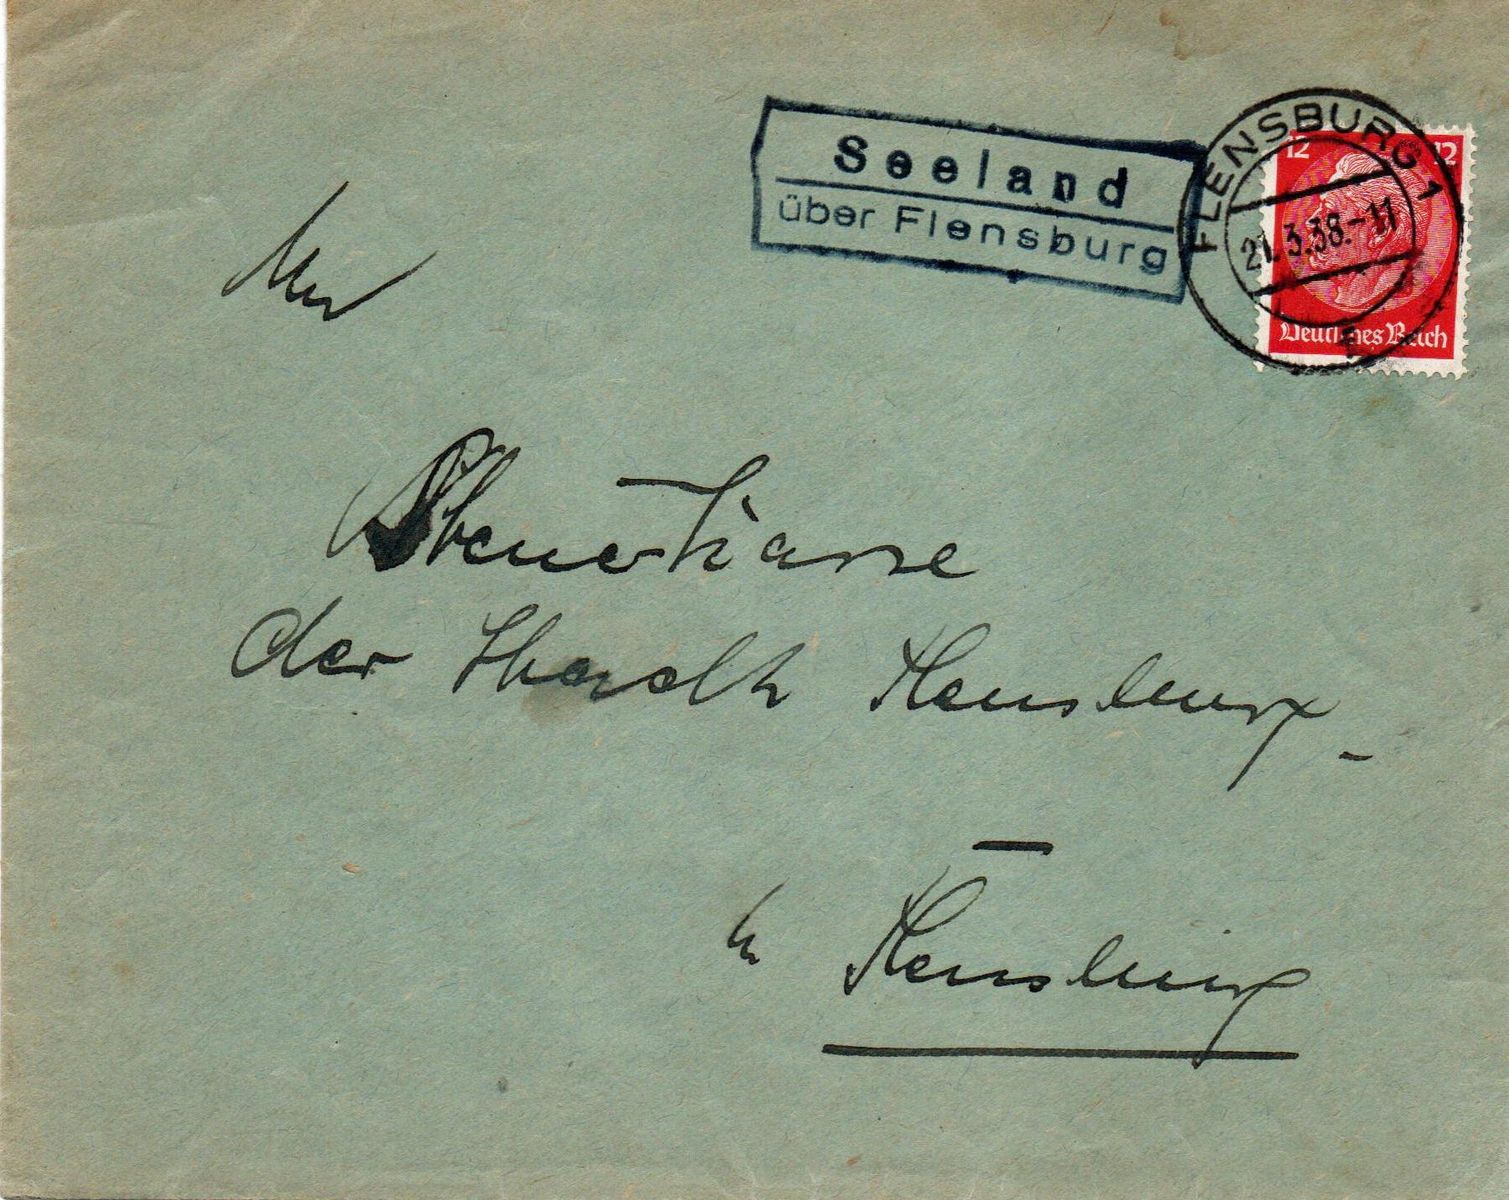 Seeland
über Flensburg
FLENSBURG 1
21.3.38.-11
12 12
Deutsches Reich
An
Steuerkasse
der Stadt Flensburg
in Flensburg